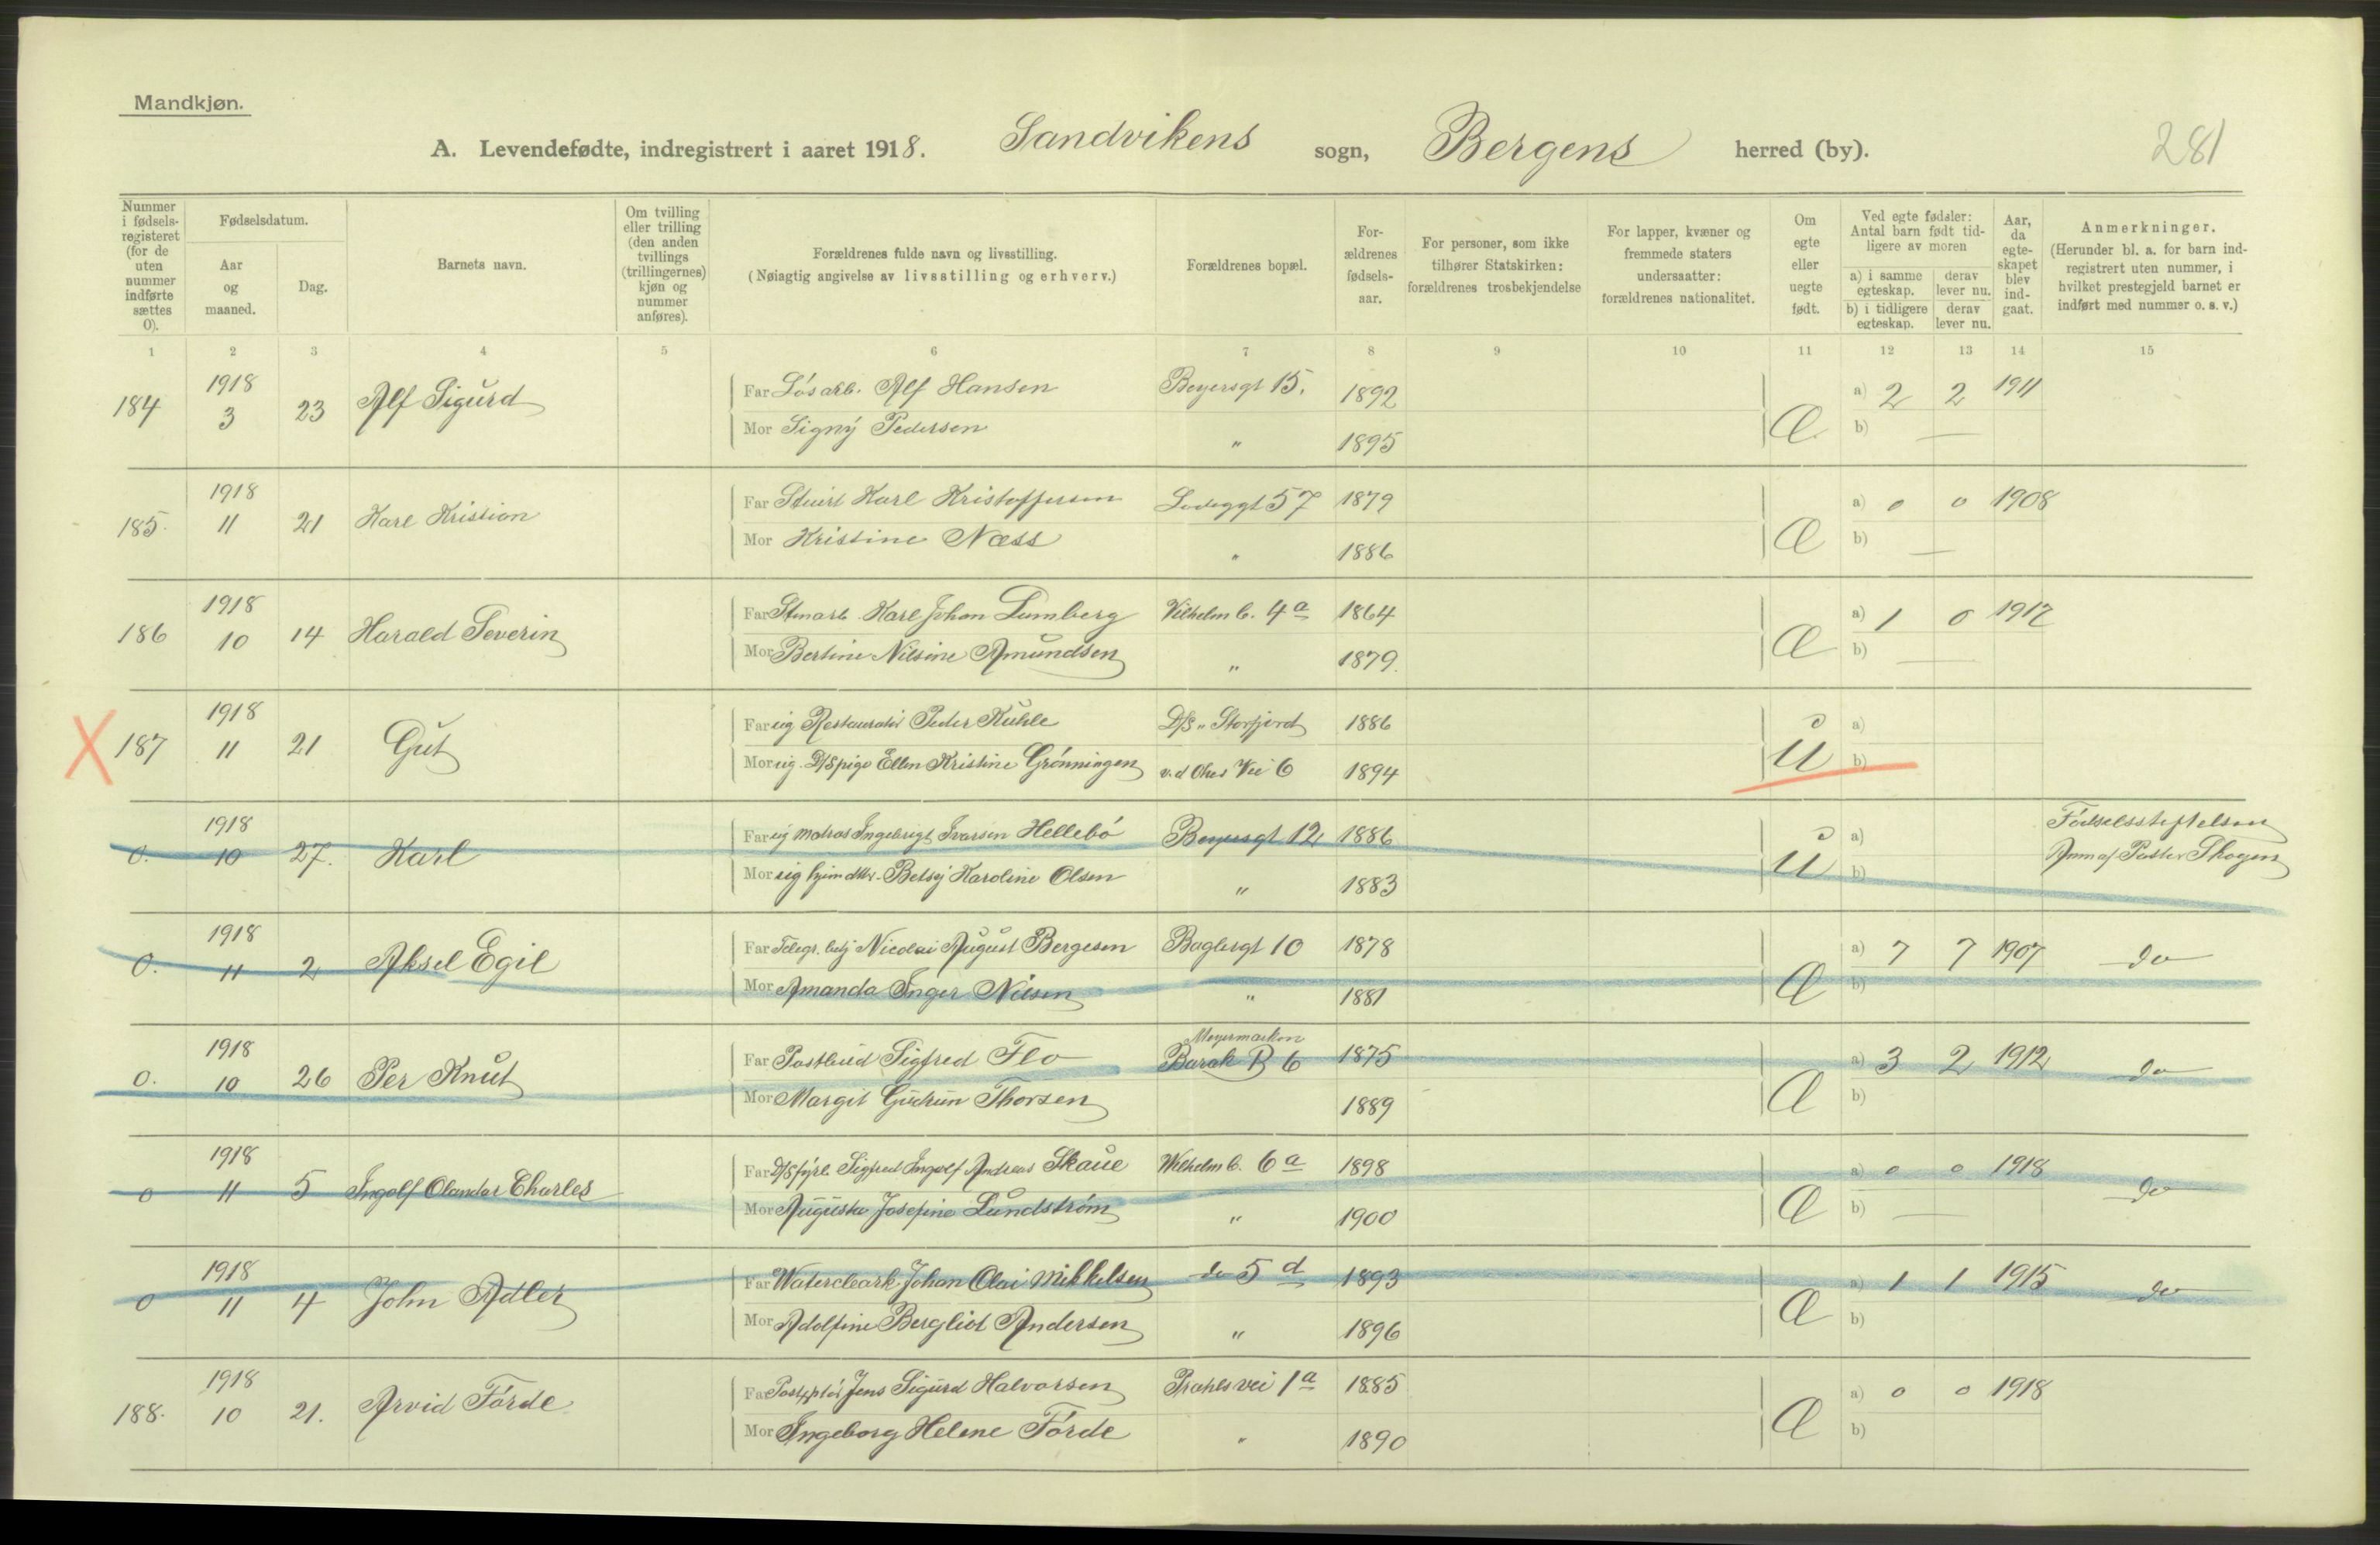 Mandkjøn.
A. Levendefødte, indregistrert i aaret 1918. Sandvikens sogn, Bergens herred (by). 281
Nummer i fødsels-registeret (for de uten nummer indførte sættes 0).
Fødselsdatum.
Aar og maaned.
Dag.
Barnets navn.
Om tvilling eller trilling (den anden tvillings (trillingernes) kjøn og nummer anføres).
Forældrenes fulde navn og livsstilling.
(Nøiagtig angivelse av livsstilling og erhverv.)
Forældrenes bopæl.
For-ældrenes fødsels-aar.
For personer, som ikke tilhører Statskirken: forældrenes trosbekjendelse
For lapper, kvæner og fremmede staters undersaatter: forældrenes nationalitet.
Om egte eller uegte født.
Ved egte fødsler: Antal barn født tid-ligere av moren
a) i samme egteskap. derav lever nu.
b) i tidligere egteskap. derav lever nu.
Aar, da egte-skapet blev ind-gaat.
Anmerkninger.
(Herunder bl. a. for barn ind-registrert uten nummer, i hvilket prestegjeld barnet er indført med nummer o. s. v.)
1 2 3 4 5 6 7 8 9 10 11 12 13 14 15
184 1918 3 23 Alf Sigurd Far Løsarb. Alf Hansen Beyersgt 15. 1892 Æ a) 2 2 1911
Mor Signy Pedersen " 1895 b) —
185. 1918 11 21 Karl Kristian Far Stuert Karl Kristoffersen Ladeggt 57 1879 Æ a) 0 0 1908
Mor Kristine Næss " 1886 b) —
186 1918 10 14 Harald Severin Far Stenarb. Karl Johan Lumberg Vilhelm b. 4a 1864 Æ a) 1 0 1917
Mor Bertine Nilsine Amundsen " 1879. b) —
X 187 1918 11 21 Gut Far ug Restauratør Peder Kuhle D/S "Storfjord 1886 U a)
Mor ug. D/Spige Ellen Kristine Grønningen v.d Ohes Vei 6 1894 b)
0. 1918 10 27. Karl Far ug Matros Ingebrigt Ivarsen Hellebø Beyersgt 12 1886 U a) Fødselsstiftelsen
Mor ug hjem dtr. Betsy Karoline Olsen " 1883 b) Anm af Pastor Skogen
0. 1918 11 2 Aksel Egil Far Telegr. betj Nicolai August Bergesen Baglergt 10 1878 Æ a) 7 7 1907 do
Mor Amanda Inger Nilsen " 1881 b)
0. 1918 10 26 Per Knut Far Postbud Sigfred Flo Meyermarken Barak B 6 1875 Æ a) 3 2 1912 do
Mor Margit Gudrun Thorsen 1889 b)
0 1918 11 5 Ingolf Olandar Charles Far D/S fyrb. Sigfred Ingolf Andreas Skaue Wilhelm b. 6a 1898 Æ a) 0 0 1918 do
Mor Augusta Josefine Lundstrøm " 1900 b) —
0 1918 11 4 John Adler Far Watercleark Johan Olai Mikkelsen do 5 d 1893 Æ a) 1 1 1915 do
Mor Adolfine Bergliot Andersen " 1896 b)
188. 1918 10 21. Arvid Førde Far Jens Sigurd Halvorsen Prahls vei 1a 1885 Æ a) 0 0 1918
Mor Ingeborg Helene Førde " 1890 b)